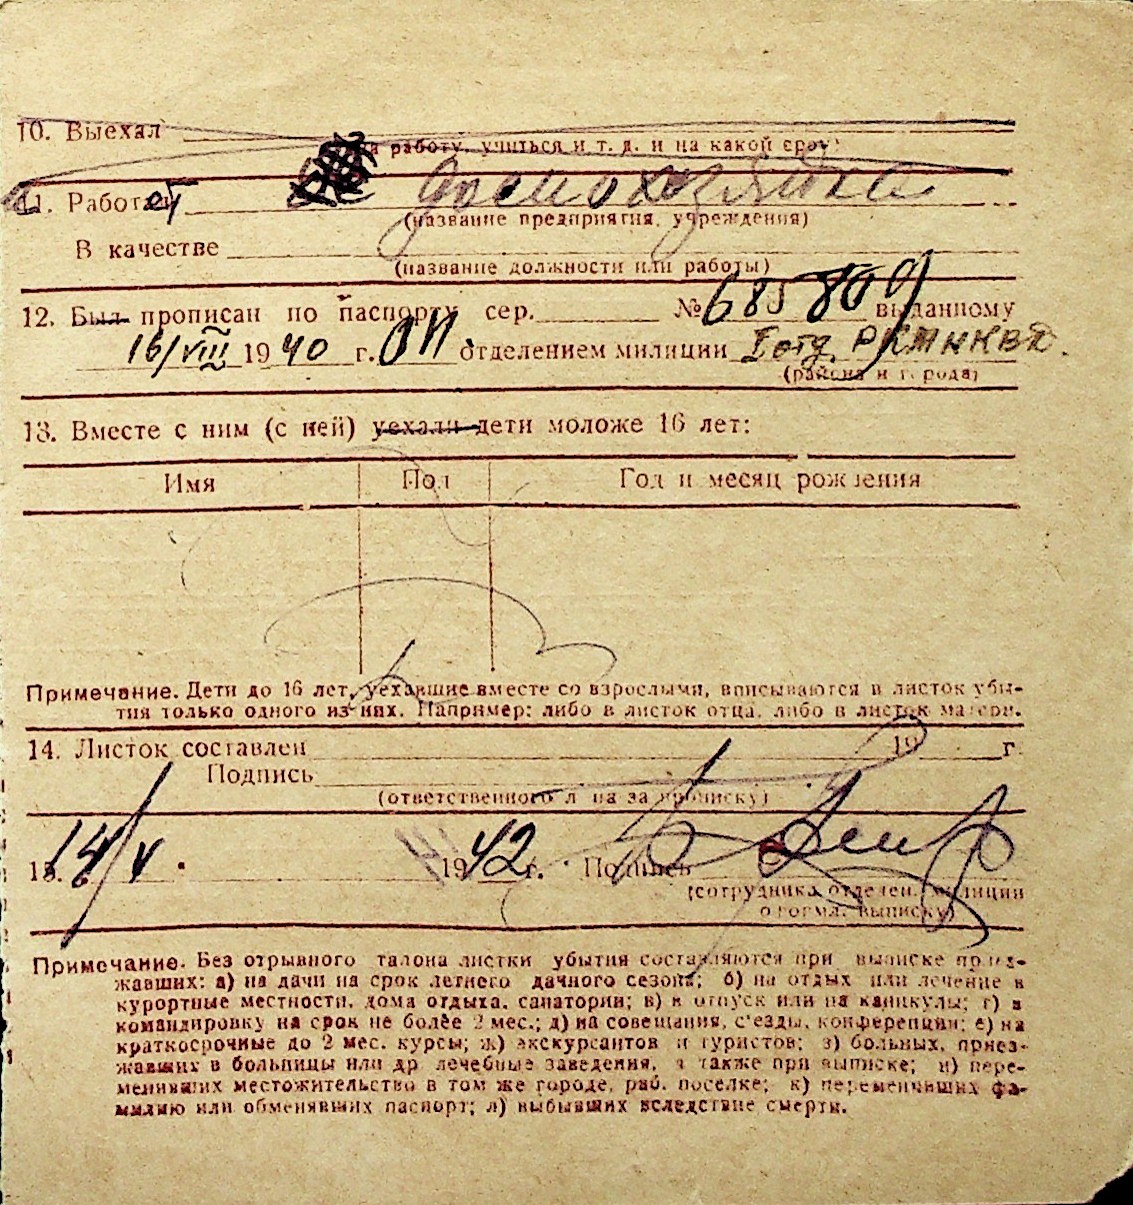 10. Выехал
на работу, учиться и т. д. и на какой срок)
11. Работает домохозяйка
(название предприятия, учреждения)
В качестве
(название должности или работы)
12. Был прописан по паспорту сер. № 685809 выданному
16/VIII 1940 г. отделением милиции I отд. РКМ НКВД.
(района и города)
13. Вместе с ним (с ней) уехали дети моложе 16 лет:
Имя Пол Год и месяц рождения
Примечание. Дети до 16 лет, уехавшие вместе со взрослыми, вписываются в листок убы-
тия только одного из них. Например: либо в листок отца, либо в листок матери.
14. Листок составлен 19 г.
Подпись
(ответственного лица за прописку)
15. 14/V 1942 г. Подпись
(сотрудника отделен. милиции
оформл. выписку)
Примечание. Без отрывного талона листки убытия составляются при выписке приез-
жавших: а) на дачи на срок летнего дачного сезона; б) на отдых или лечение в
курортные местности, дома отдыха, санатории; в) в отпуск или на каникулы; г) в
командировку на срок не более 2 мес.; д) на совещания, с'езды, конференции; е) на
краткосрочные до 2 мес. курсы; ж) экскурсантов и туристов; з) больных, приез-
жавших в больницы или др лечебные заведения, а также при выписке; и) пере-
менивших местожительство в том же городе, раб. поселке; к) переменивших фа-
милию или обменявших паспорт; л) выбывших вследствие смерти.